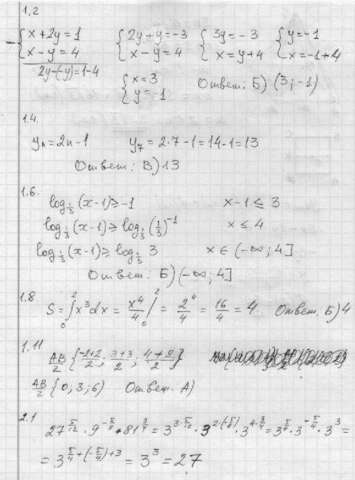 1.2
{x+2y=1 {2y+y=-3 {3y=-3 {y=-1
-{x-y=4 {x-y=4 {x=y+4 {x=-1+4
2y-(-y)=1-4
{x=3 Ответ: Б) (3;-1)
{y=-1
1.4.
yₙ=2n-1 y₇=2·7-1=14-1=13
Ответ: В) 13
1.6.
log_{1/3}(x-1)≥-1 x-1≤3
log_{1/3}(x-1)≥log_{1/3}(1/3)^{-1} x≤4
log_{1/3}(x-1)≥log_{1/3} 3 x∈(-∞;4]
Ответ: Б) (-∞;4]
1.8
S=∫₀²x³dx=x⁴/4|₀²=2⁴/4=16/4=4 Ответ: Б) 4
1.11
AB/2{-2+2/2; 3+3/2; 4+8/2}
AB/2{0; 3; 6} Ответ: А)
2.1
27^{5/12}·9^{-5/8}+81^{3/4}=3^{3·5/12}·3^{2(-5/8)}·3^{4·3/4}=3^{5/4}·3^{-5/4}·3³=
=3^{5/4+(-5/4)+3}=3³=27